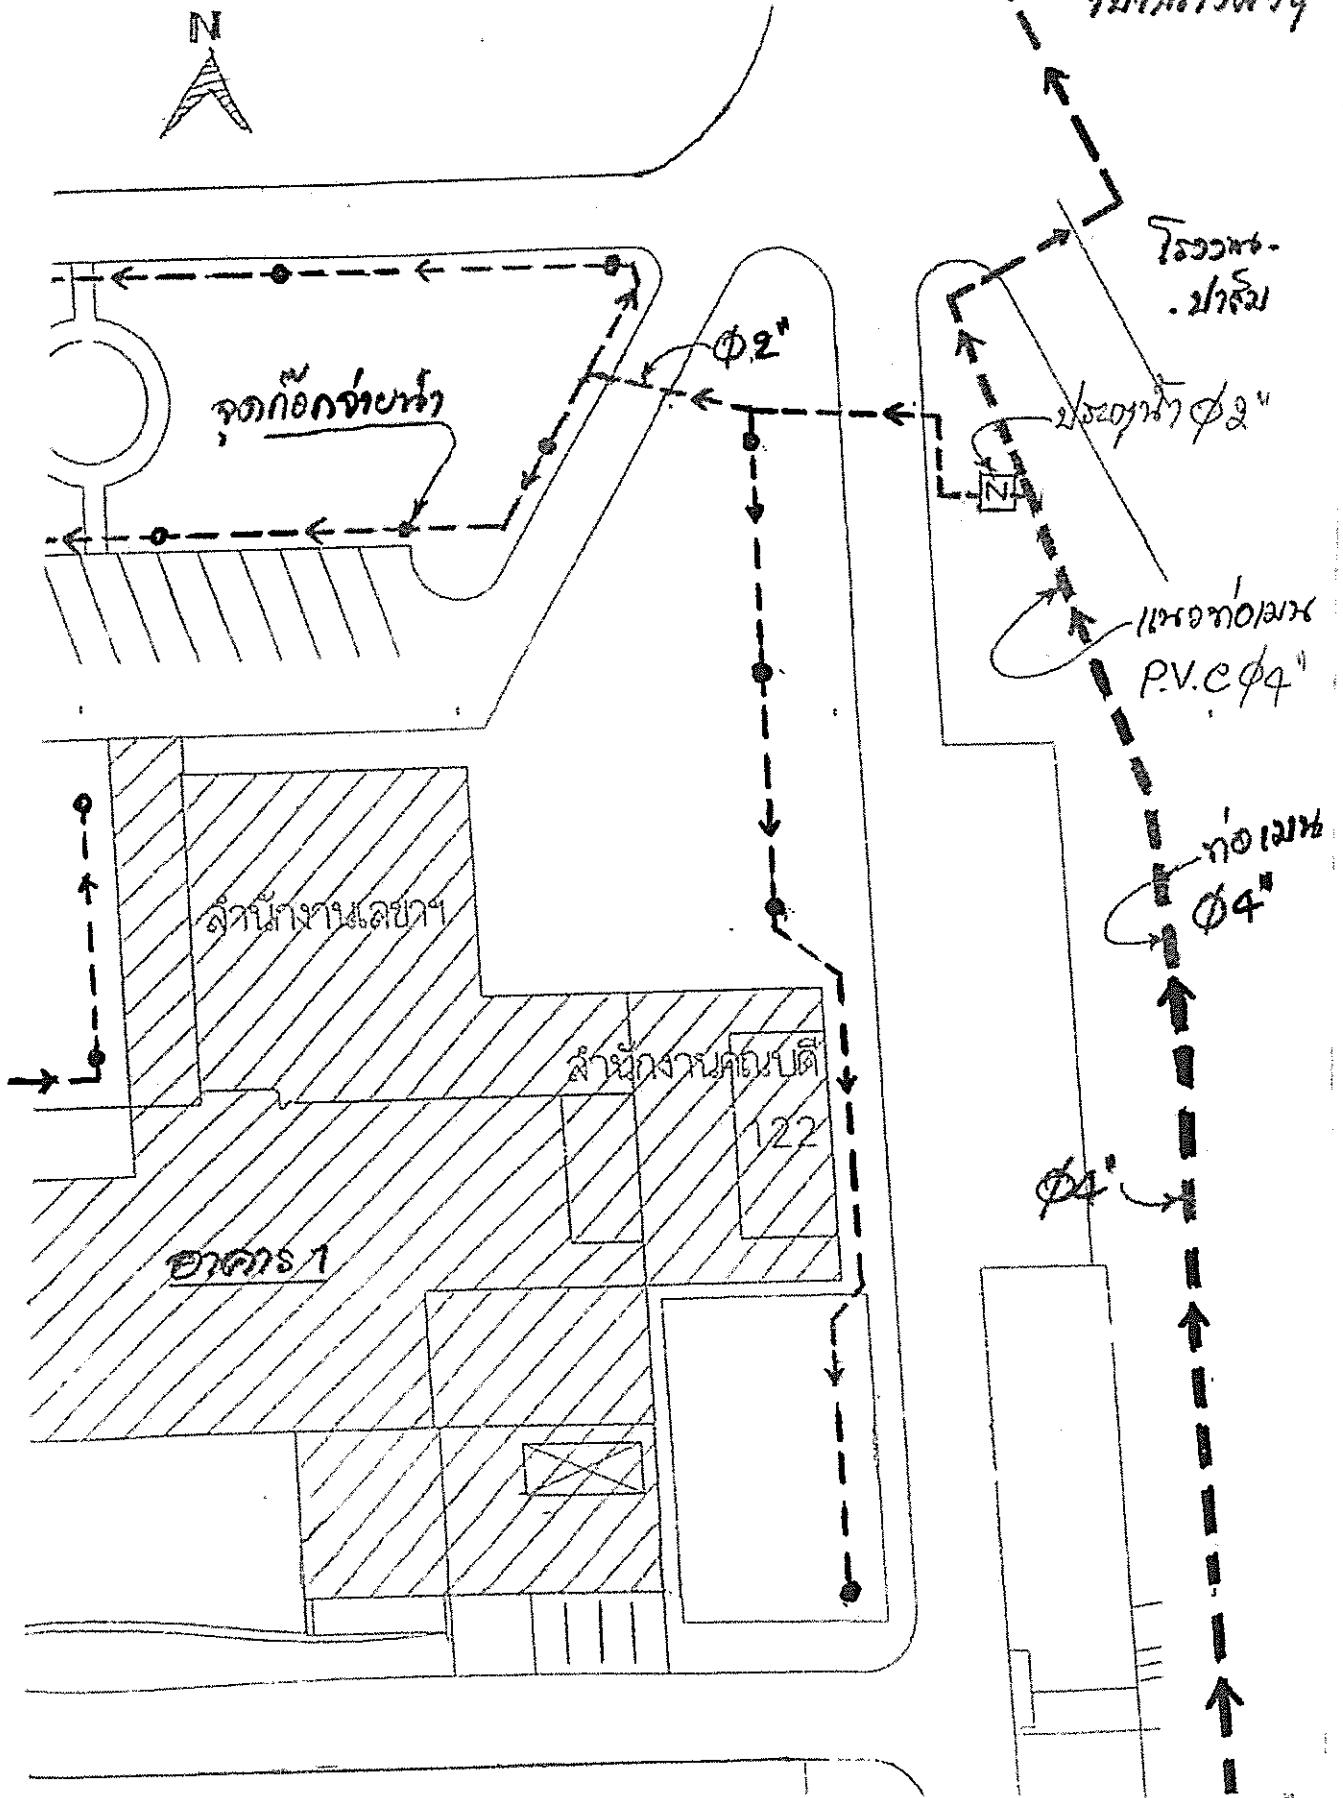 N
โรงงาน-
ปาล์ม
φ2"
จุดก๊อกจ่ายน้ำ
ประตูน้ำ φ2"
Z
แนวท่อเมน
P.V.C φ4"
ท่อเมน
φ4"
สำนักงานเลขาฯ
สำนักงานคณบดี
122
φ4"
อาคาร 1